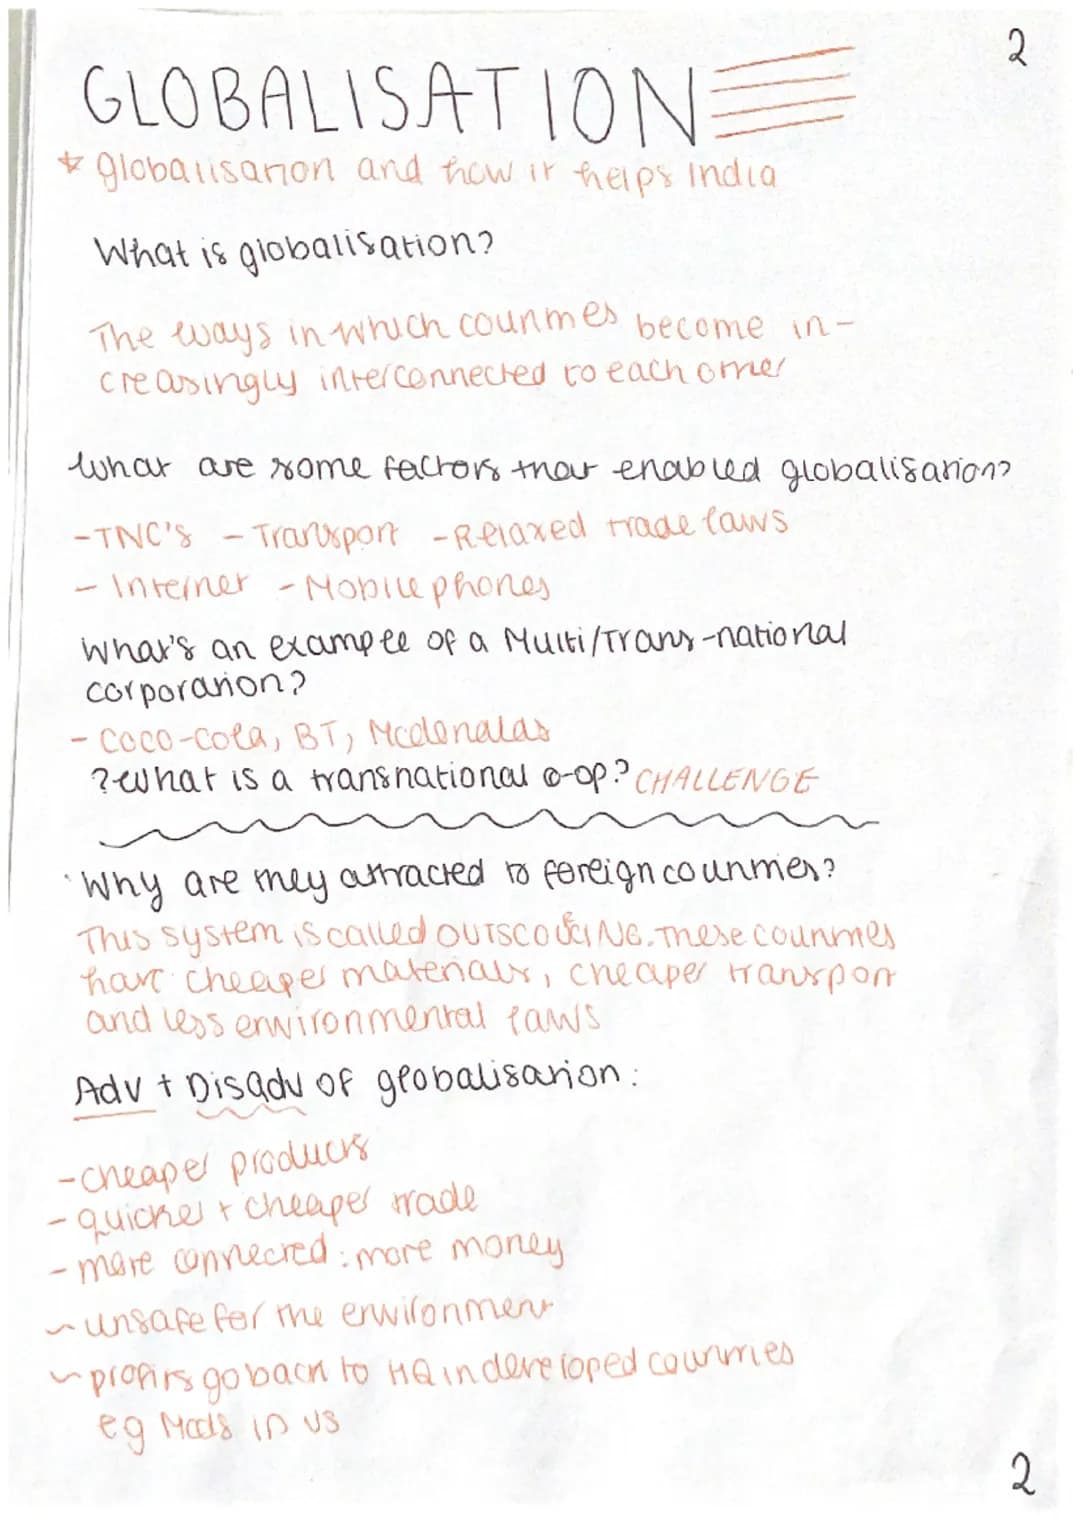 2
GLOBALISATION
* globalisation and how it helps India
What is globalisation?
The ways in which countries become in-
creasingly interconnected to each other
What are some factors that enabled globalisation?
-TNC's - Transport -Relaxed trade laws
- Internet - Mobile phones
What's an example of a Multi/Trans-national
corporation?
- Coco-cola, BT, Mcdonalds
? What is a transnational co-op? CHALLENGE
Why are they attracted to foreign countries?
This system is called OUTSCOURCING. These countries
have cheaper materials, cheaper transport
and less environmental laws
Adv + Disadv of globalisation:
-cheaper products
- quicker + cheaper trade
- more connected: more money
~ unsafe for the environment
~ profits go back to HQ in developed countries
eg Mcds in US
2